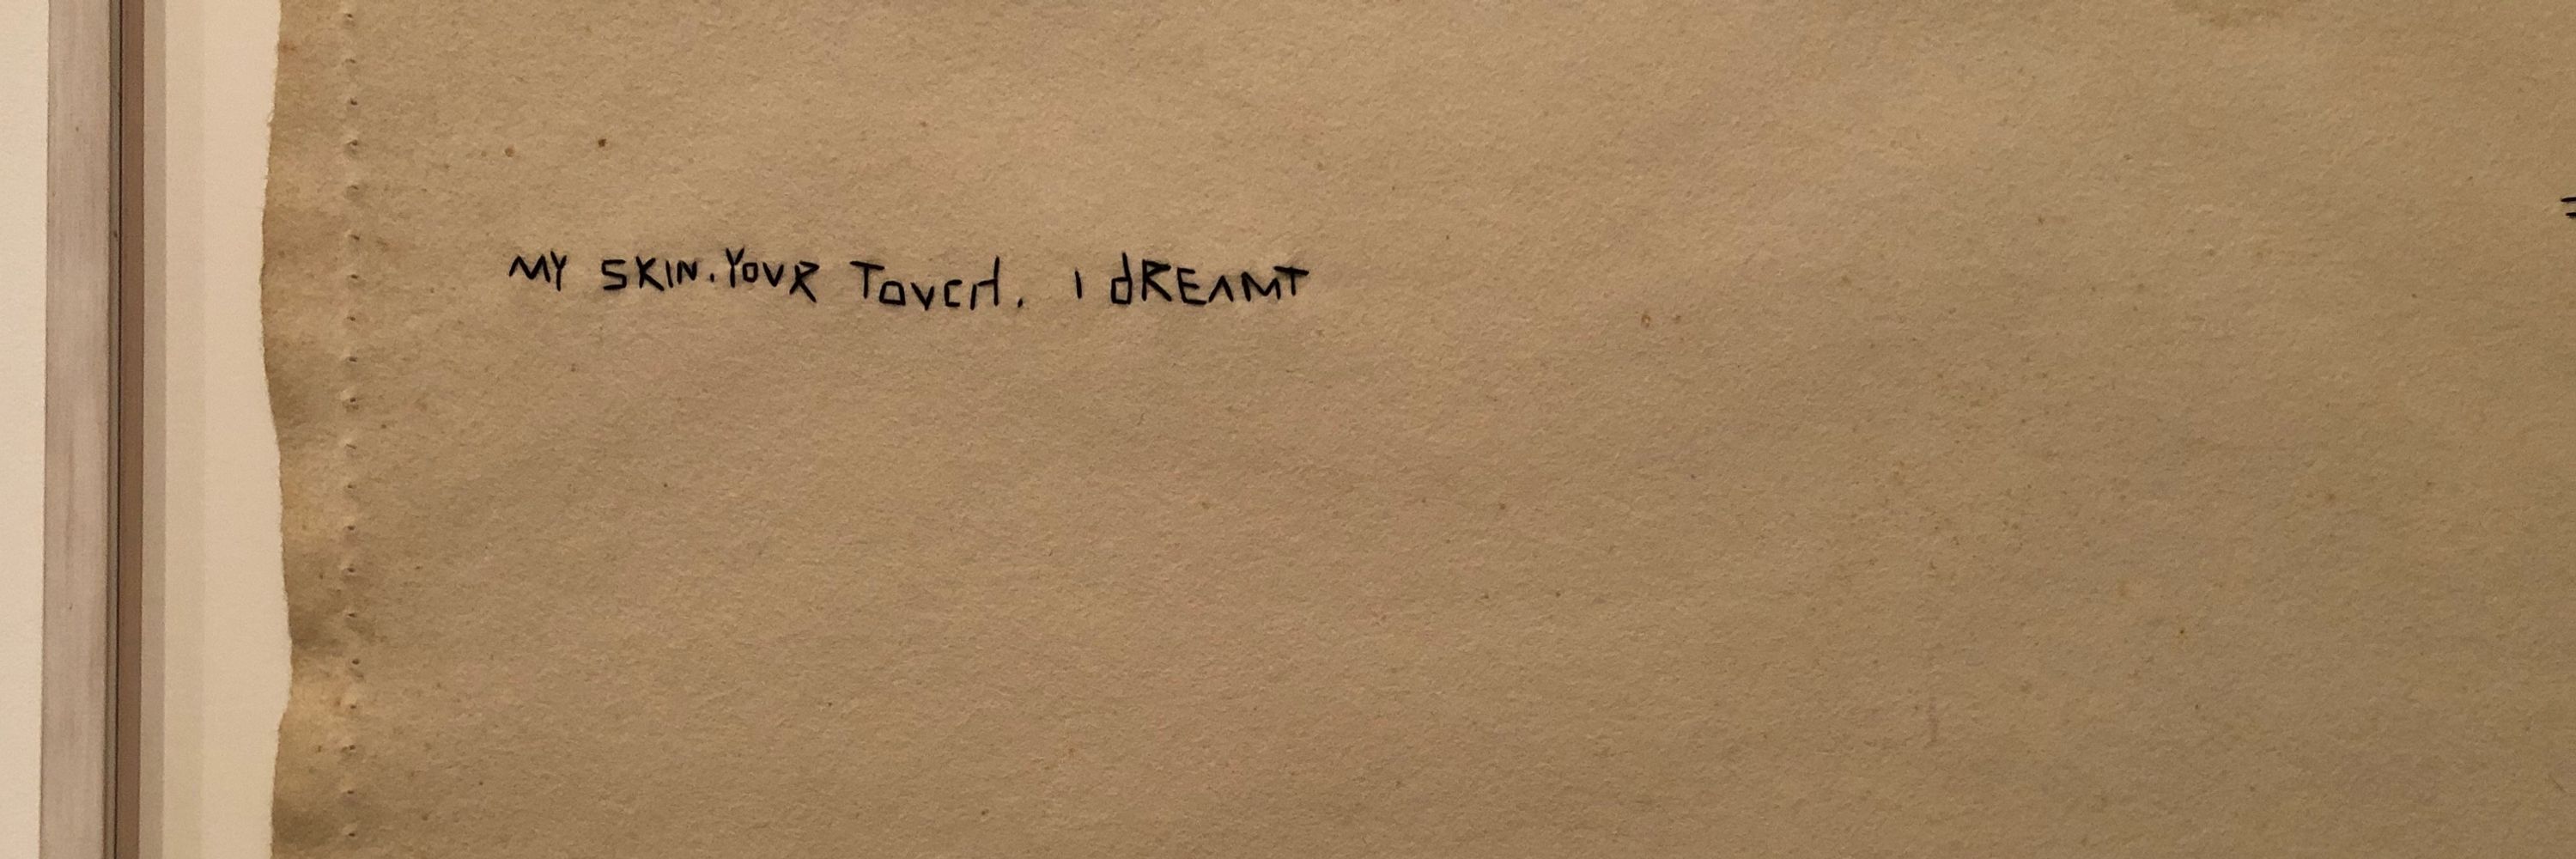 MY SKIN. YOUR TOUCH. I dREAMT